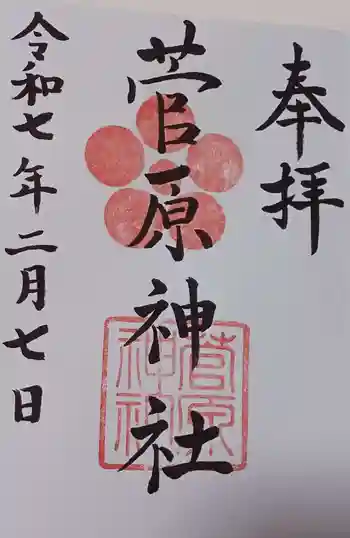 奉拝
菅原神社
菅原神社
令和七年二月七日